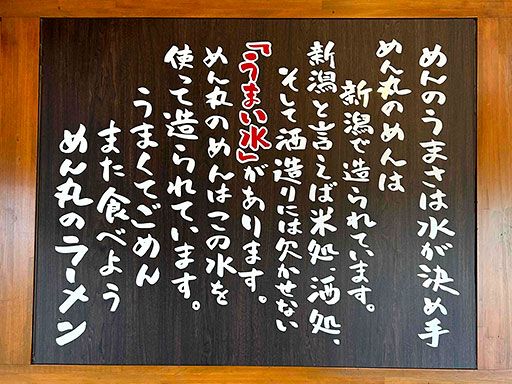 めんのうまさは水が決め手
めん丸のめんは
新潟で造られています。
新潟と言えば米処、酒処、
そして酒造りには欠かせない
『うまい水』があります。
めん丸のめんはこの水を
使って造られています。
うまくてごめん
また食べよう
めん丸のラーメン